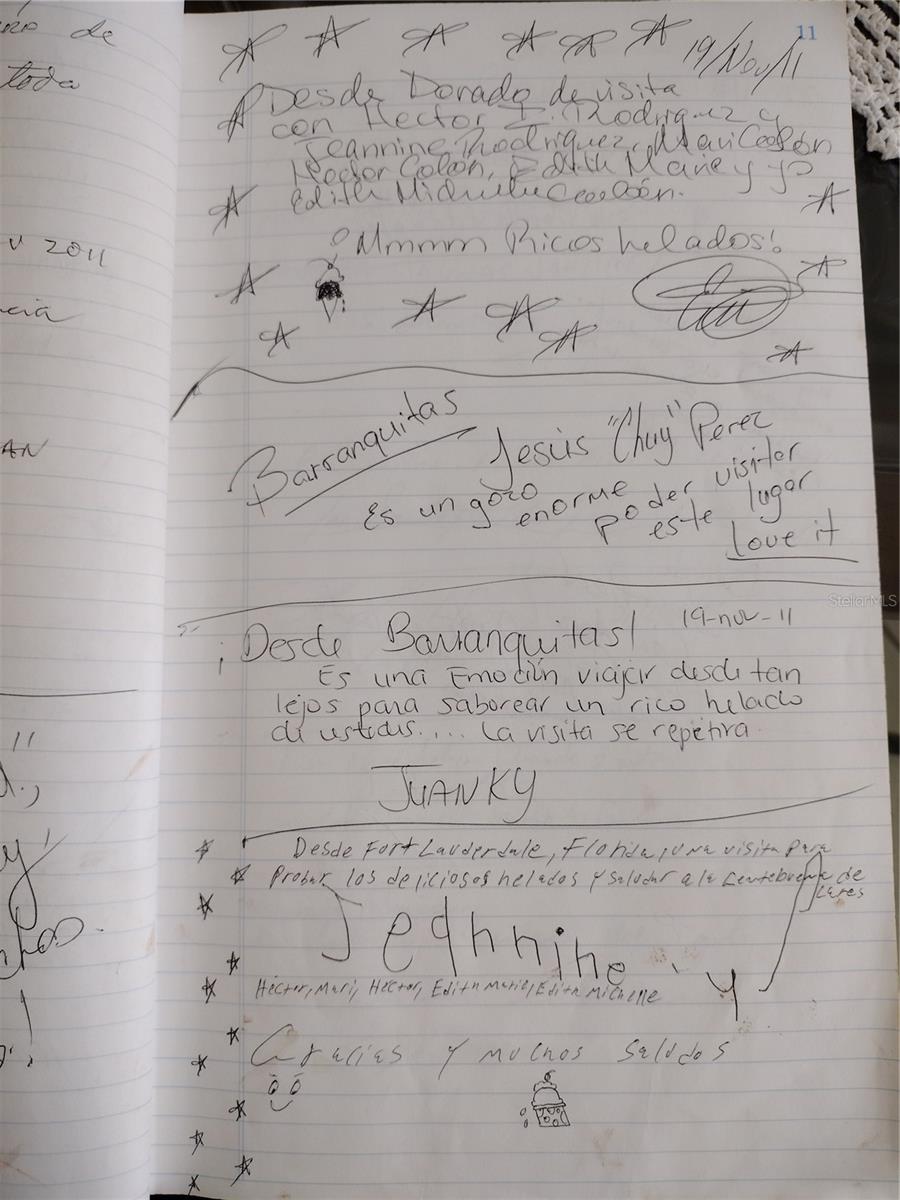 de
toda
v 2011
cia
AN
11
19/Nov/11
Desde Dorado de visita
con Hector I. Rodriguez y
Jeannine Rodriguez, Mari Colón
Hector Colón, Edith Marie y yo
Edith Michelle Colón.
Mmmm Ricos helados!
Barranquitas
Jesús "Chuy" Perez
Es un gozo enorme poder visitar
este lugar
Love it
StellarMLS
¡Desde Barranquitas! 19-nov-11
Es una Emoción viajar desde tan
lejos para saborear un rico helado
de ustedes.... La visita se repetira.
JUANKY
Desde Fort Lauderdale, Florida, una visita para
Probar los deliciosos helados y saludar a la gente buena de
Lares
Jeannine y
Héctor, Mari, Héctor, Edith Marie, Edith Michelle
Gracias y muchos saludos